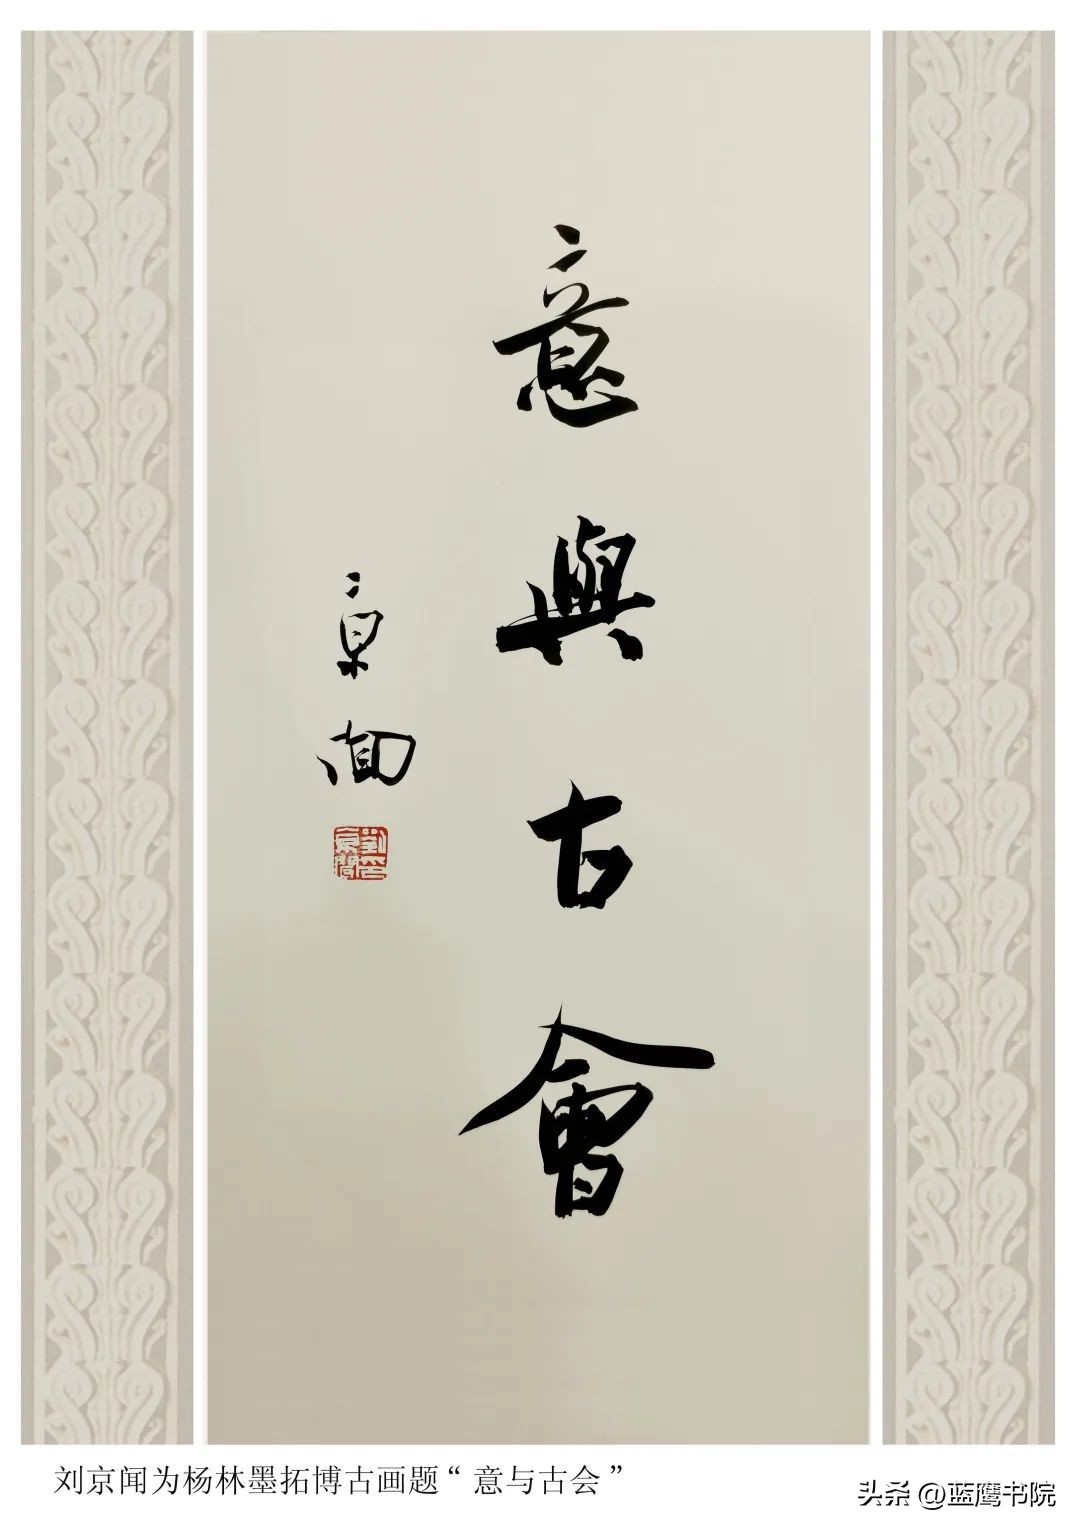 意與古會
京闻
刘京闻为杨林墨拓博古画题“意与古会”
头条 @蓝鹰书院